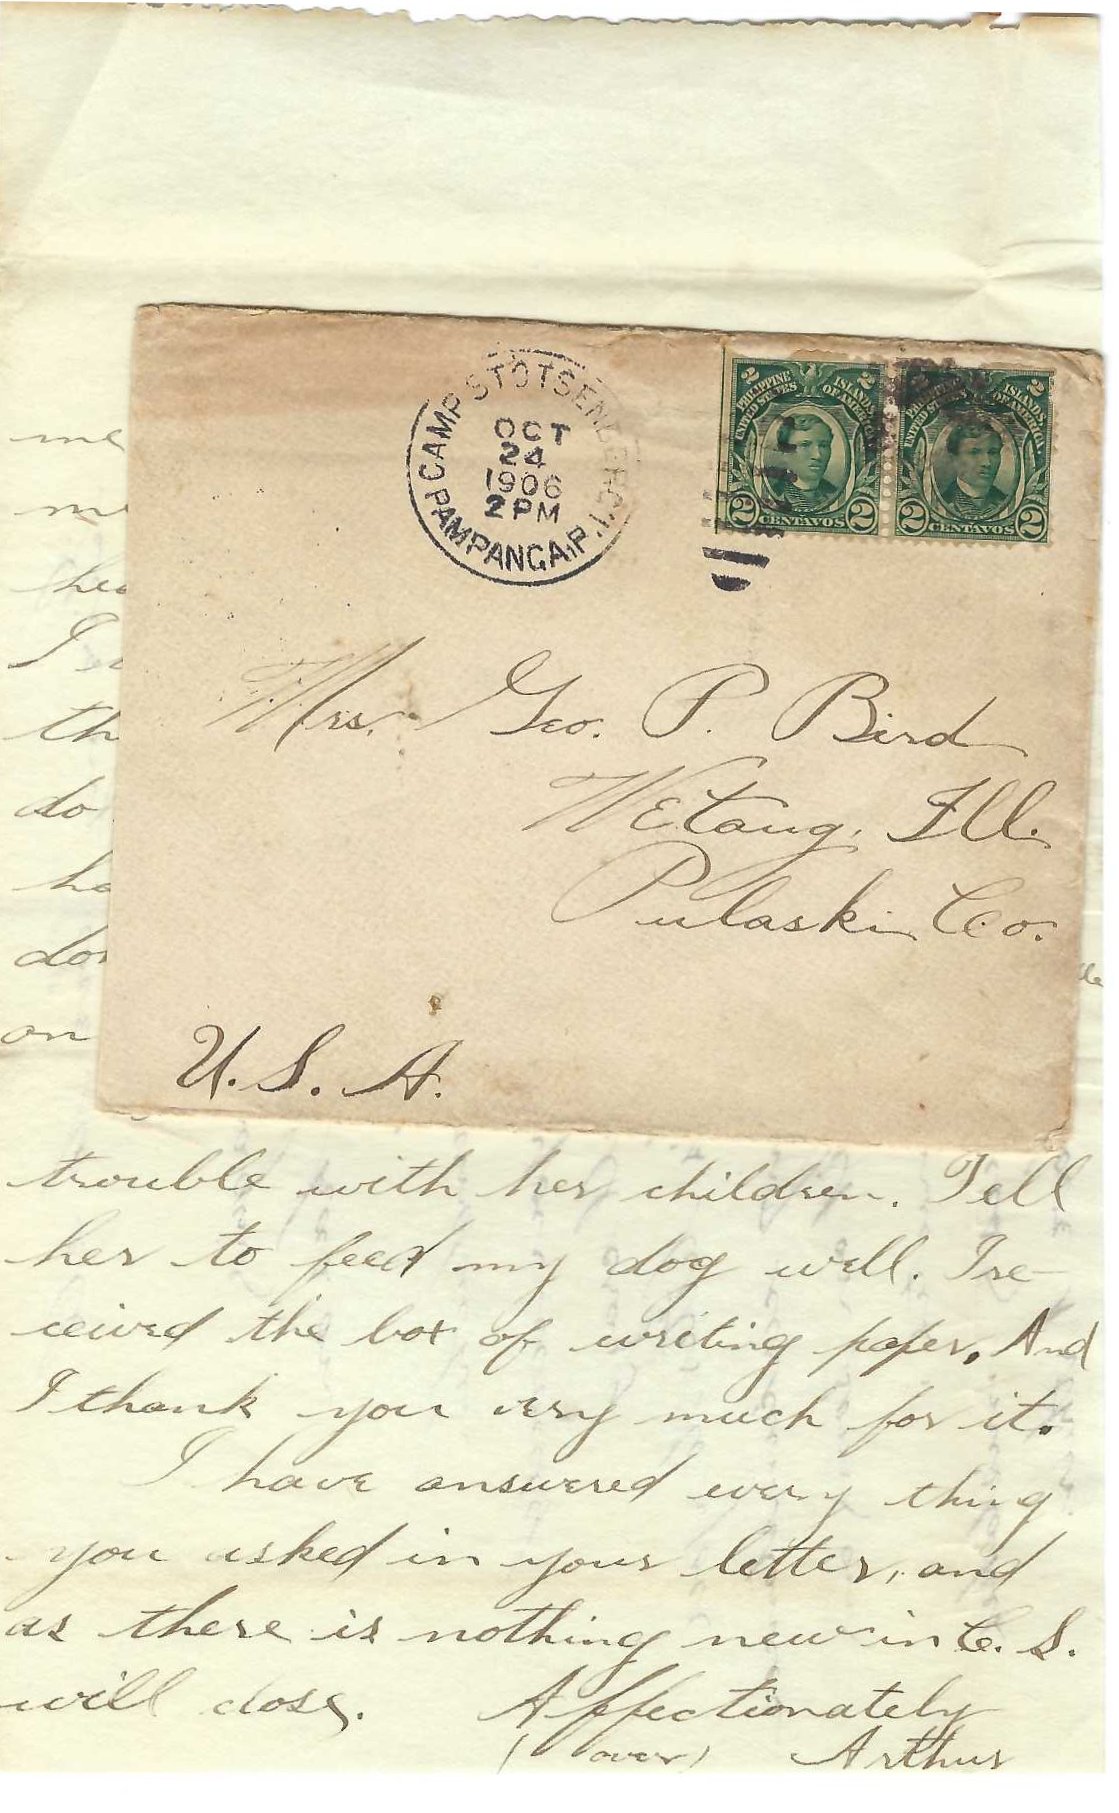 CAMP STOTSENBERG,
PAMPANGA, P.I.
OCT
24
1906
2 PM
PHILIPPINE ISLANDS
UNITED STATES OF AMERICA
2 CENTAVOS 2
PHILIPPINE ISLANDS
UNITED STATES OF AMERICA
2 CENTAVOS 2
Mrs. Geo. P. Bird
Wetaug, Ill.
Pulaski Co.
U.S.A.
me
me
hea
I
th
do
ha
don
on
trouble with her children. Tell
her to feed my dog well. I re-
ceived the box of writing paper. And
I thank you very much for it.
I have answered every thing
you asked in your letter, and
as there is nothing new in C. S.
will close. Affectionately
(over) Arthur